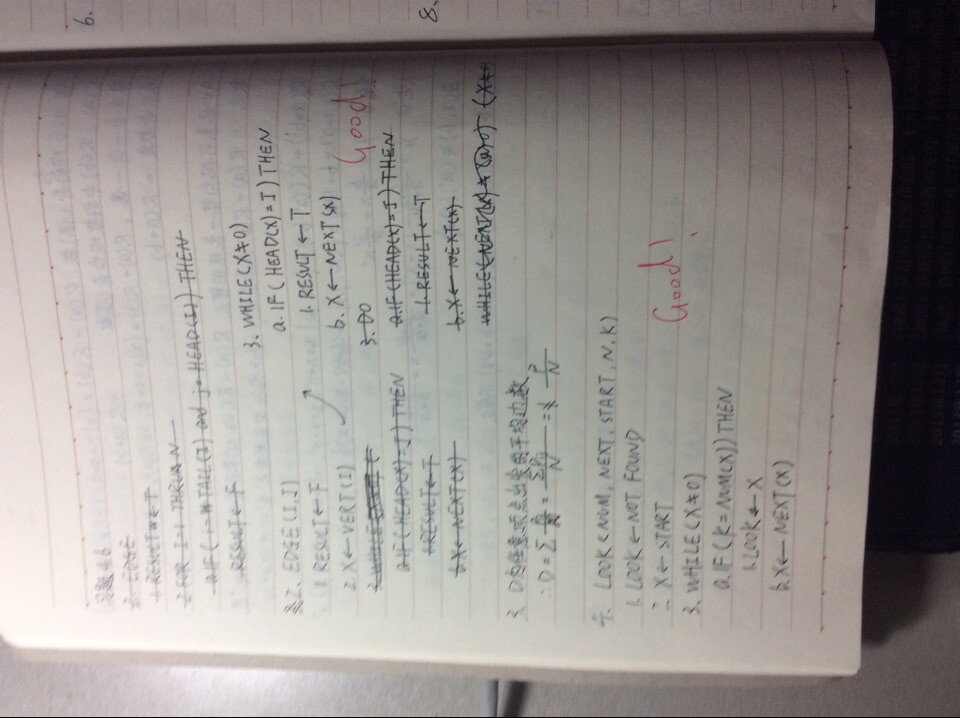 习题4.6
2. EDGE
1. RESULT ← T
2. FOR I=1 THRU N
a. IF (i = TAIL(I) and j = HEAD(I)) THEN
RESULT ← F
2. EDGE(I,J)
1. RESULT ← F
2. X ← VERT(I)
3. WHILE (
a. IF (HEAD(X)=J) THEN
1. RESULT ← T
b. X ← NEXT(X)
3. WHILE(X≠0)
a. IF (HEAD(X)=J) THEN
1. RESULT ← T
b. X ← NEXT(X)
Good!
3. DO
a. IF (HEAD(X)=J) THEN
1. RESULT ← T
b. X ← NEXT(X)
3. D为任意顶点出发的平均边数
4. LOOK(NUM, NEXT, START, N, K)
1. LOOK ← NOT FOUND
2. X ← START
3. WHILE(X≠0)
a. IF (K=NUM(X)) THEN
1. LOOK ← X
b. X ← NEXT(X)
Good!
6.
8.